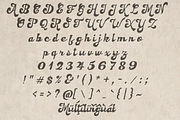 ABCDEFGHIJKLM
NOPQRSTUVWXYZ
abcdefghijklmno
pqrstuvwxyz
0123456789
!"#$%&'()*+,-./:;
<=>?@[\]^_`{|}~
Multilingual